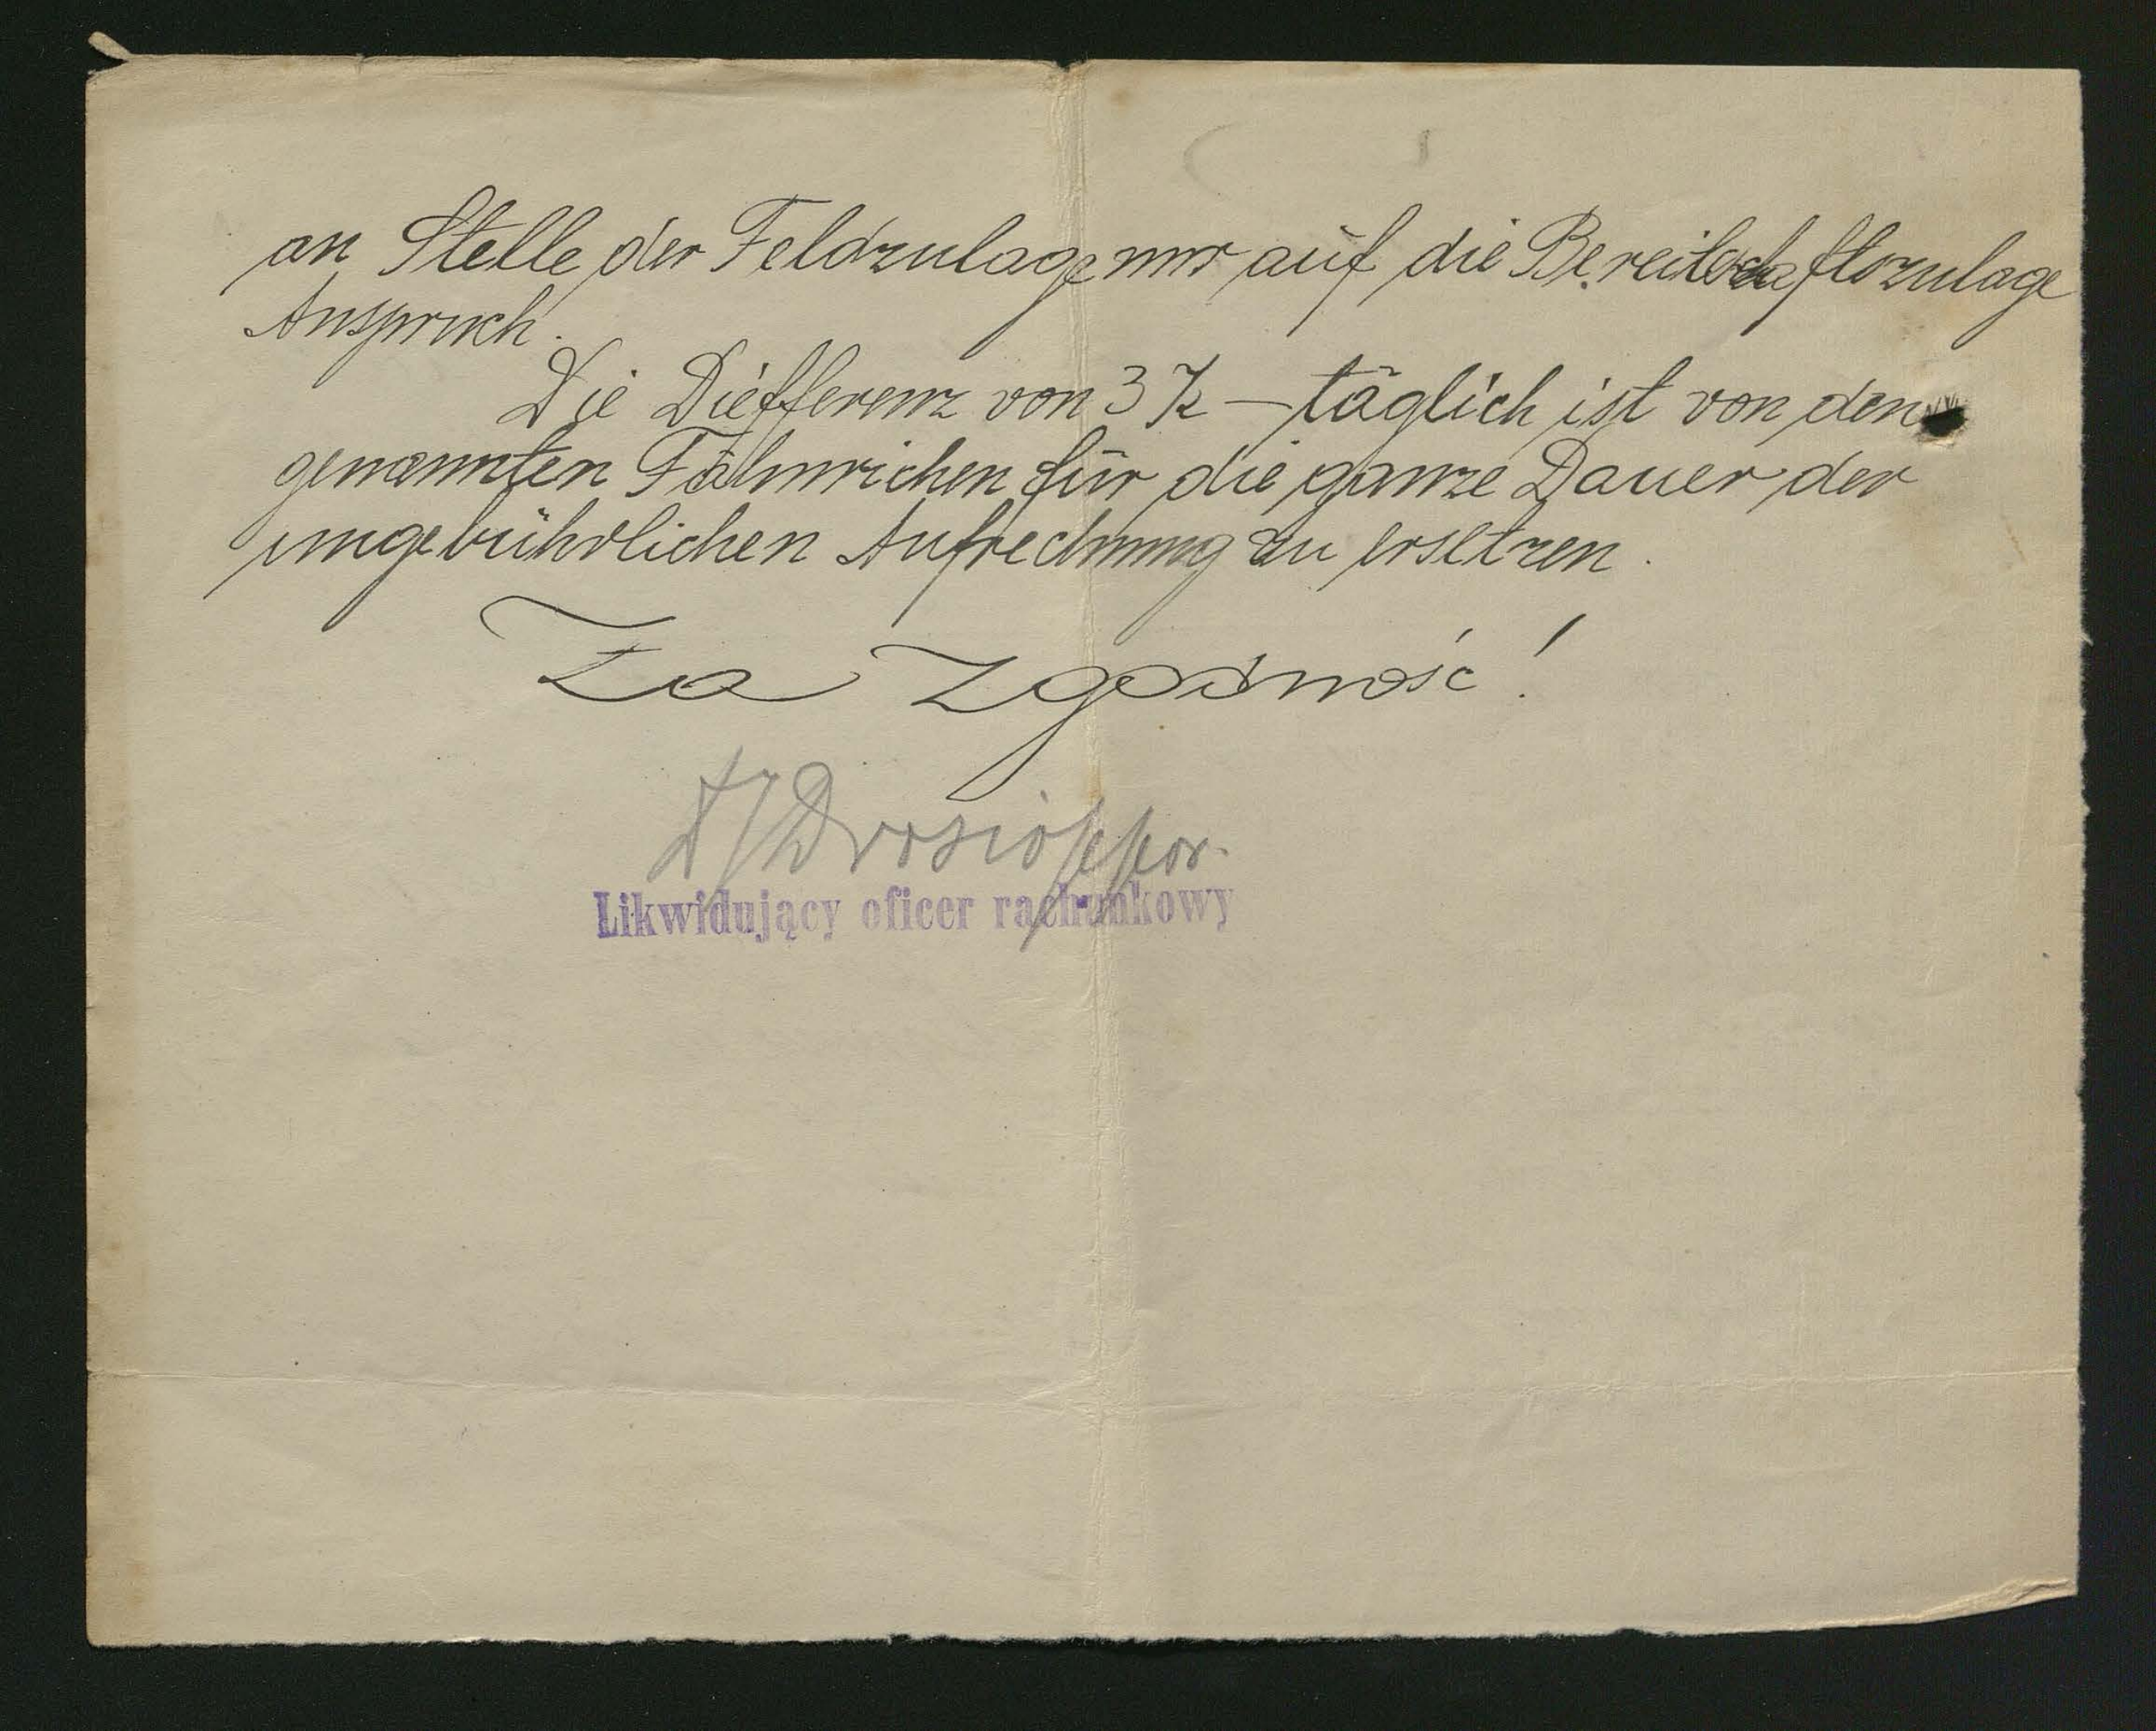 an Stelle der Feldzulage nur auf die Bereitschaftszulage
Anspruch.
Die Diefferenz von 3 K – täglich ist von den
genannten Fähnrichen für die ganze Dauer der
ungebührlichen Aufrechnung zu ersetzen.
Za zgodność!
Likwidujący oficer rachunkowy